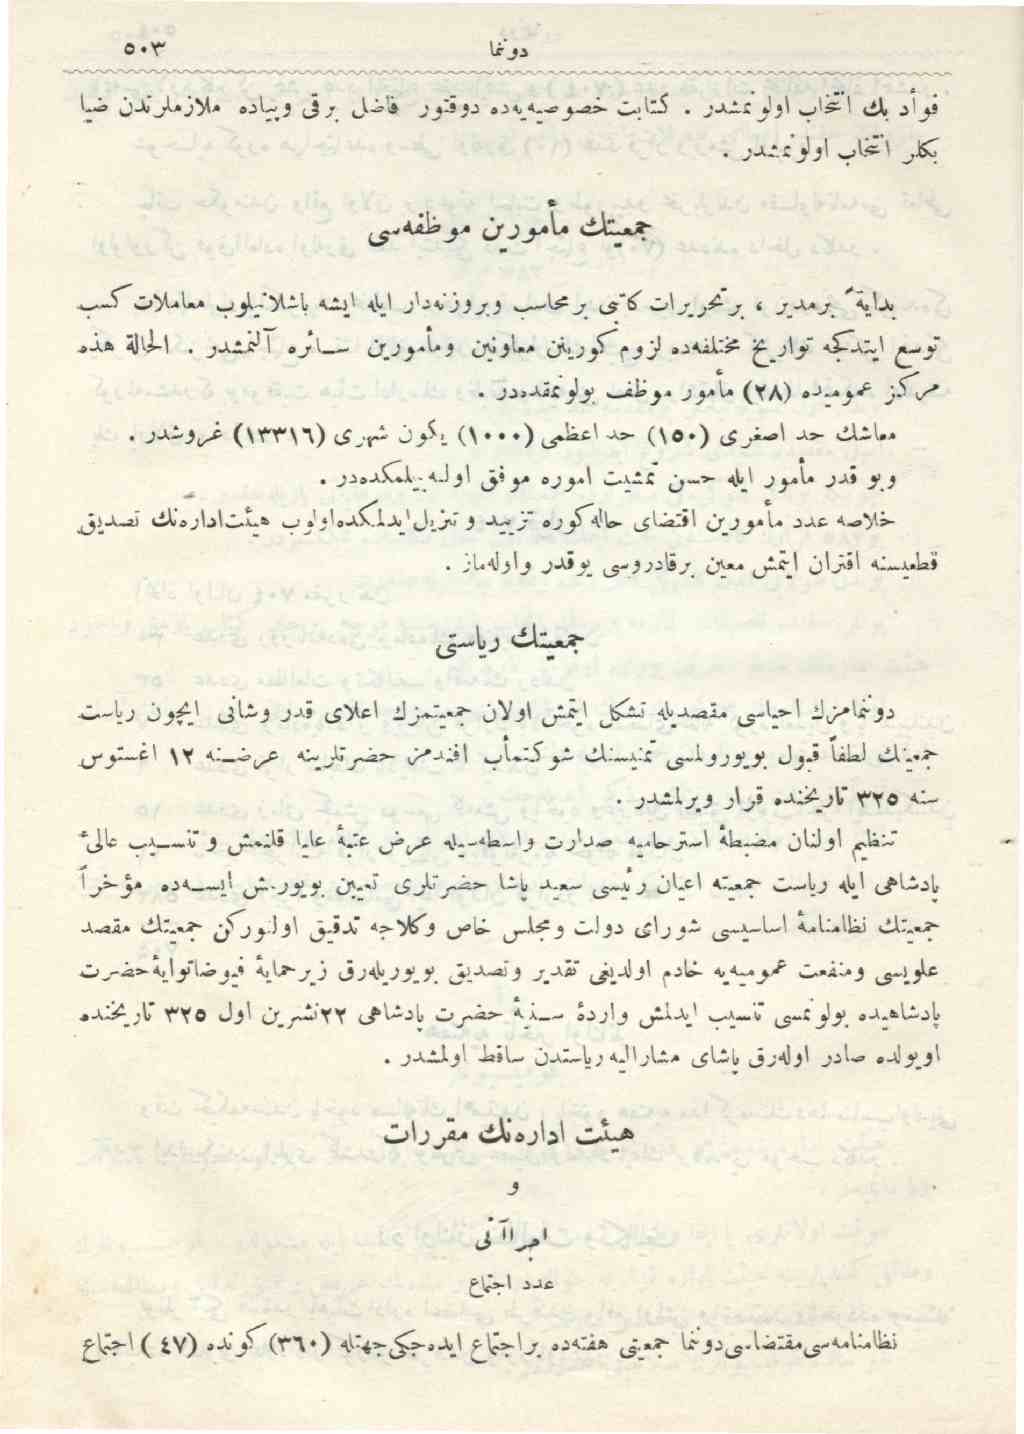 دوننما
٥٠٣
فوأد بك انتخاب اولونمشدر . كتابت خصوصيه‌يه‌ده دوقتور فاضل برقى وپياده ملازملرندن ضيا
بكلر انتخاب اولونمشدر .
جمعيتك مأمورين موظفه‌سى
بداية ً برمدير ، بر تحريرات كاتبى برمحاسب وبروزنه‌دار ايله ايشه باشلانيلوب معاملات كسب
توسع ايتدكجه تواريخ مختلفه‌ده لزوم كورينن معاونين ومأمورين سائره آلنمشدر . الحالة هذه
مركز عموميده (٢٨) مأمور موظف بولونمقده‌در .
معاشك حد اصغرى (١٥٠) حد اعظمى (١٠٠٠) يكون شهرى (١٣٣١٦) غروشدر .
وبو قدر مأمور ايله حسن تمشيت اموره موفق اولنه‌بيلمكده‌در .
خلاصه عدد مأمورين اقتضاى حاله‌كوره تزييد و تنزيل‌ايدلمكده‌اولوب هيئت‌اداره‌نك تصديق
قطعيسنه اقتران ايتمش معين برقادروسى يوقدر واوله‌ماز .
جمعيتك رياستى
دوننمامزك احياسى مقصديله تشكل ايتمش اولان جمعيتمزك اعلاى قدر وشانى ايچون رياست
جمعيتك لطفاً قبول بويورولمسى تمنيسنك شوكتمأب افندمز حضرتلرينه عرضنه ١٢ اغستوس
سنه ٣٢٥ تاريخنده قرار ويرلمشدر .
تنظيم اولنان مضبطۀ استرحاميه صدارت واسطه‌سيله عرض عتبۀ عليا قلنمش و تنسيب عالئ
پادشاهى ايله رياست جمعيته اعيان رئيسى سعيد پاشا حضرتلرى تعيين بويورلمش ايسه‌ده مؤخراً
جمعيتك نظامنامۀ اساسيسى شوراى دولت ومجلس خاص وكلاجه تدقيق اولنوركن جمعيتك مقصد
علويسى ومنفعت عموميه‌يه خادم اولديغى تقدير وتصديق بويوريله‌رق زيرحمايۀ فيوضاتوايۀ حضرت
پادشاهيده بولونمسى تنسيب ايدلمش وارادۀ سنيۀ حضرت پادشاهى ٢٢ تشرين اول ٣٢٥ تاريخنده
اويولده صادر اوله‌رق پاشاى مشاراليه رياستدن ساقط اولمشدر .
هيئت اداره‌نك مقررات
و
اجراآتى
عدد اجتماع
نظامنامه‌سى مقتضاسى دوننما جمعيتى هفته‌ده براجتماع ايده‌جكى جهتله (٣٦٠) كونده (٤٧) اجتماع